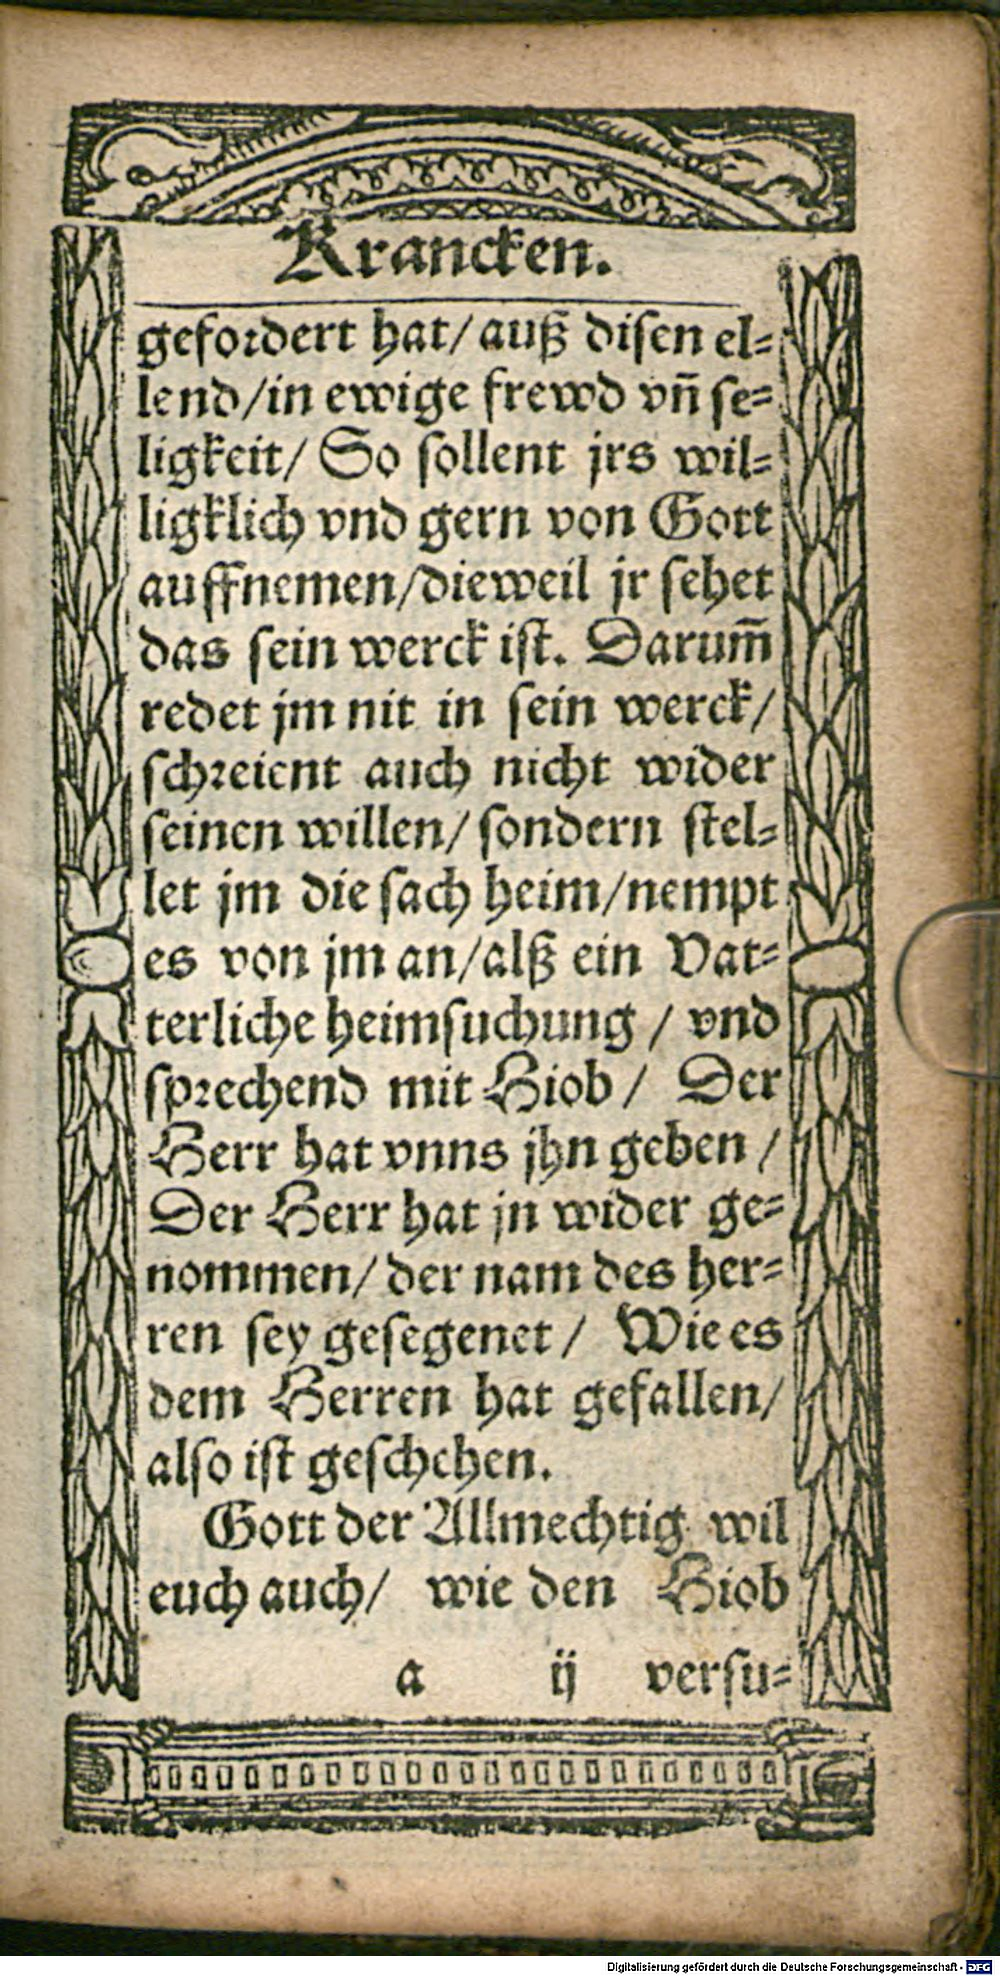 Krancken.
gefordert hat/ auß disen el⸗
lend/in ewige frewd vn̄ se⸗
ligkeit/ So sollent jrs wil⸗
ligklich vnd gern von Gott
auffnemen/dieweil jr sehet
das sein werck ist. Darum̄
redet jm nit in sein werck/
schreient auch nicht wider
seinen willen/ sondern stel⸗
let jm die sach heim/nempt
es von jm an/alß ein Vat⸗
terliche heimsuchung / vnd
sprechend mit Hiob/ Der
Herr hat vnns jhn geben /
Der Herr hat jn wider ge⸗
nommen/ der nam des her⸗
ren sey gesegenet / Wie es
dem Herren hat gefallen/
also ist geschehen.
Gott der Allmechtig wil
euch auch/ wie den Hiob
a ij versu⸗
Digitalisierung gefördert durch die Deutsche Forschungsgemeinschaft - DFG